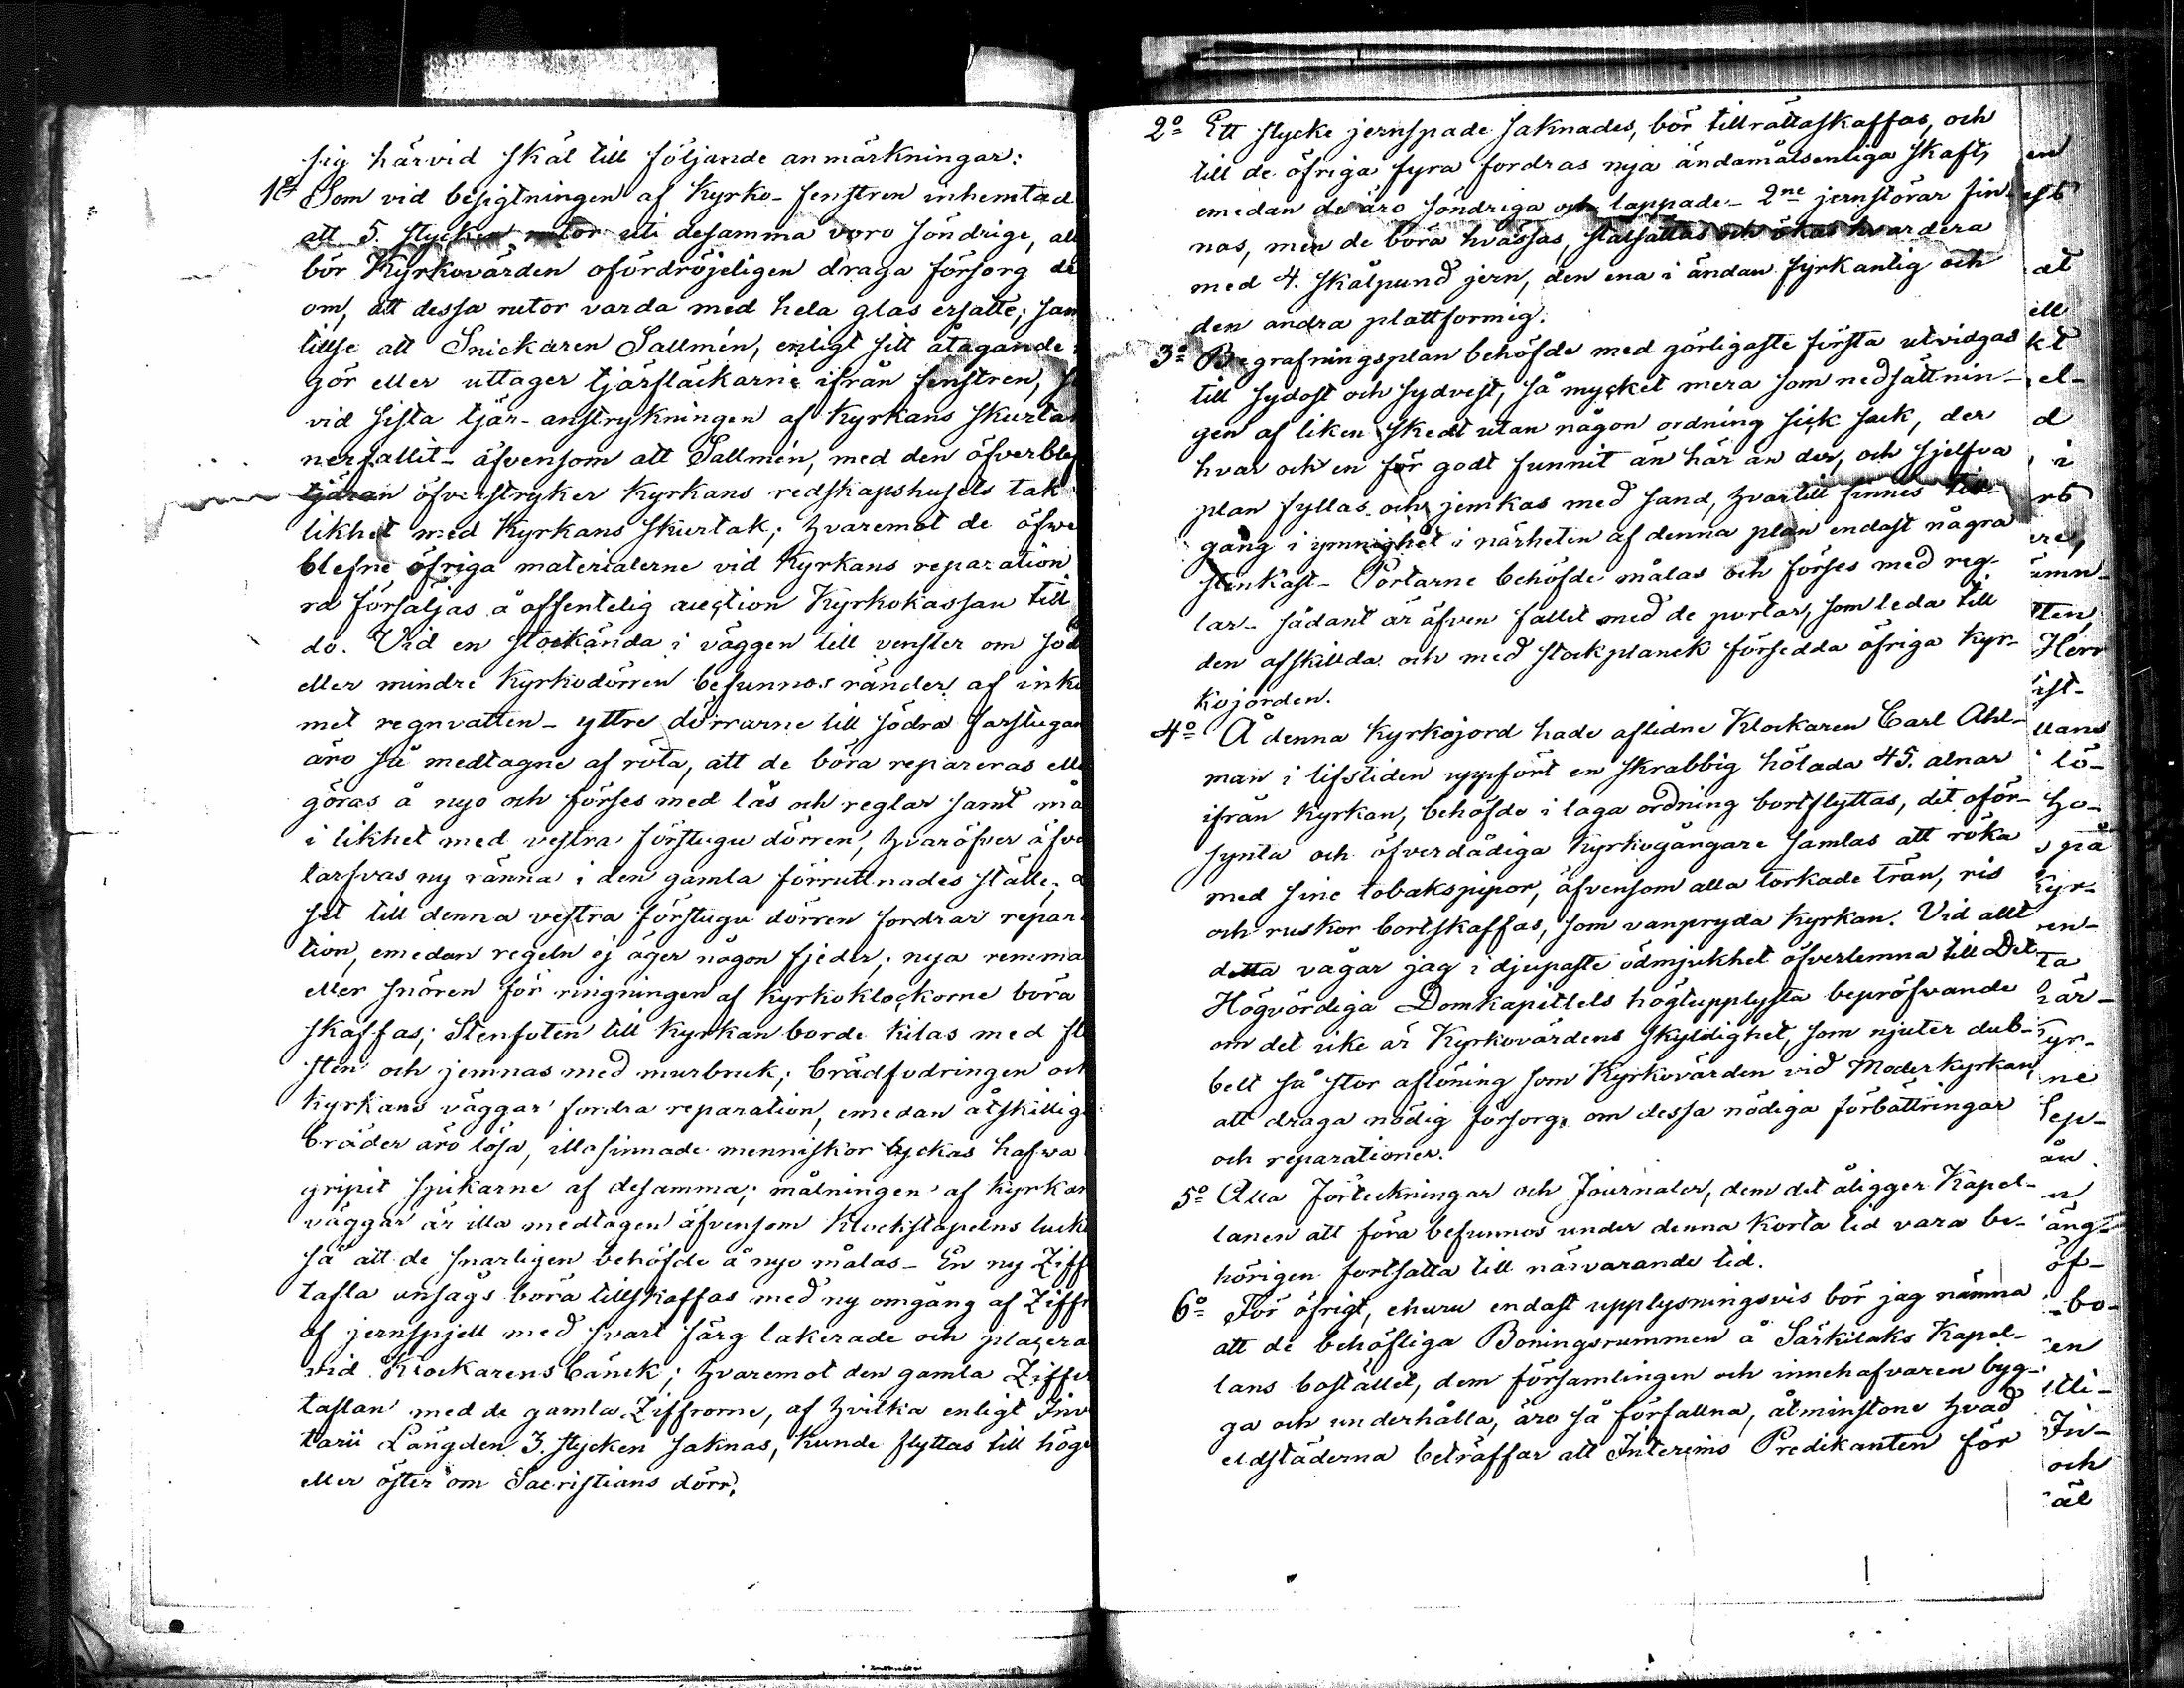 sig härvid skäl till följande anmärkningar:
1o Som vid besigtningen af Kyrko-fenstren inhemtad
att 5. stycken rutor uti desamma voro söndrige, all
bör Kyrkovärden ofördröjeligen draga försorg de
om, att dessa rutor varda med hela glas ersatte; sam
tillse att Snickaren Sallmén, enligt sitt åtagande
gör eller uttager tjärfläckarne ifrån fenstren, s
vid sista tjär-anstrykningen af Kyrkans skurta
nerfallit- äfvensom att Sallmén, med den öfverblef
tjäran öfverstryker Kyrkans redskapshusets tak
likhet med Kyrkans skurtak; hvaremot de öfwe
blefne öfriga materialerne vid Kyrkans reparation
ra försäljas å offentelig auction Kyrkokassan till
do. Vid en stockända i väggen till venster om söd
eller mindre Kyrkodörren befunnos ränder af inko
met regnvatten- yttre dörrarne till södra farstugan
äro så medtagne af röta, att de böra repareras elle
göras å nyo och förses med lås och reglar samt må
i likhet med vestra förstugu dörren, hvaröfver äfve
tarfvas ny ränna i den gamla förruttnades ställe;
set till denna vestra förstugu dörren fordrar repar
tion, emedan regeln ej äger någon fjeder; nya remma
eller snören för ringningen af Kyrkoklockorne böra
skaffas; Stenfoten till Kyrkan borde kilas med
sten och jemnas med murbruk; brädfodringen och
Kyrkans väggar fordra reparation, emedan åtskillig
bräder äro lösa, illasinnade menniskor tyckas hafwa
gripit spikarne af desamma; målningen af Kyrkan
väggar är illa medtagen äfvensom Klockstapelns luck
så att de snarligen behöfde å nyo målas- En ny Ziff
tafla ansågs böra tillskaffas med ny omgång af Ziffr
af jernspjell med svart färg lakerade och placera
vid Klockarens bänck; hvaremot den gamla Ziffer
taflan med de gamla Ziffrorne, af hvilka enligt Inv
tarii Längden 3. stycken saknas, kunde flyttas till höge
eller öster om Sacristians dörr.
2o Ett stycke jernspade saknades, bör tillrättaskaffas, och
till de öfriga fyra fordras nya ändamålsenliga skaft,
emedan de äro söndriga och lappade- 2ne jernstörar fin-
nas, men de böra hvässas, stålsättas och ökas hvardera
med 4. skålpund jern, den ena i ändan fyrkantig och
den andra plattformig.
3o Begrafningsplan behöfde med görligaste första utvidgas
till sydost och sydvest, så mycket mera som nedsättnin-
gen af liken skedt utan någon ordning sick sack, der
hvar och en för godt funnit än här än der, och sjelfva
plan fyllas och jemkas med sand, hvartill finnes till-
gång i ymnighet i närheten af denna plan endast några
stenkast- Portarne behöfde målas och förses med reg-
lar- sådant är äfven fallet med de portar, som leda till
den afskillda och med stockplanck försedda öfriga Kyr-
kojorden.
4o Å denna Kyrkojord hade aflidne Klockaren Carl Ahl-
man i lifstiden uppfört en skrabbig hölada 45. alnar
ifrån Kyrkan, behöfde i laga ordning bortflyttas, dit oför-
synta och öfverdådiga Kyrkogångare samlas att röka
med sine tobakspipor, äfvensom alla torkade trän, ris
och ruskor bortskaffas, som vanpryda Kyrkan. Vid allt
detta vågar jag i djupaste ödmjukhet öfverlemna till Det
Högvördiga Domkapittels högtupplysta bepröfvande
om det icke är Kyrkovärdens skyldighet, som njuter dub-
belt så stor aflöning som Kyrkovärden vid Moderkyrkan
att draga nödig försorg om dessa nödiga förbättringar
och reparationer.
5o Alla Förteckningar och Journaler, dem det åligger Kapel-
lanen att föra befunnos under denna korta tid vara be-
hörigen fortsatta till närvarande tid.
6o För öfrigt, ehuru endast upplysningsvis bör jag nämna
att de behöfliga Boningsrummen å Särkilaks Kapel-
lans boställe, dem församlingen och innehafvaren byg-
ga och underhålla, äro så förfallna, åtminstone hvad
eldstäderna beträffar att Interims Predikanten för